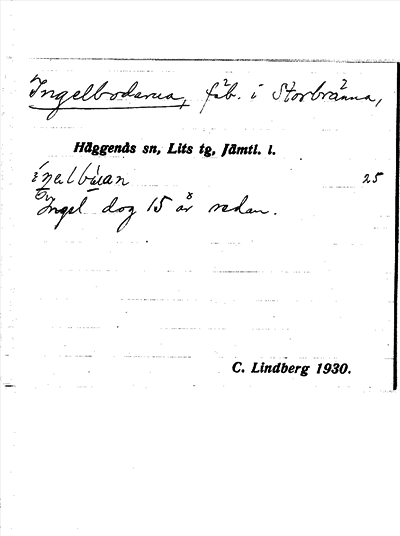 Ingelbodarna, fäb. i Storbränna,
Häggenås sn, Lits tg, Jämtl. l.
25
En Ingel dog 15 år sedan.
C. Lindberg 1930.